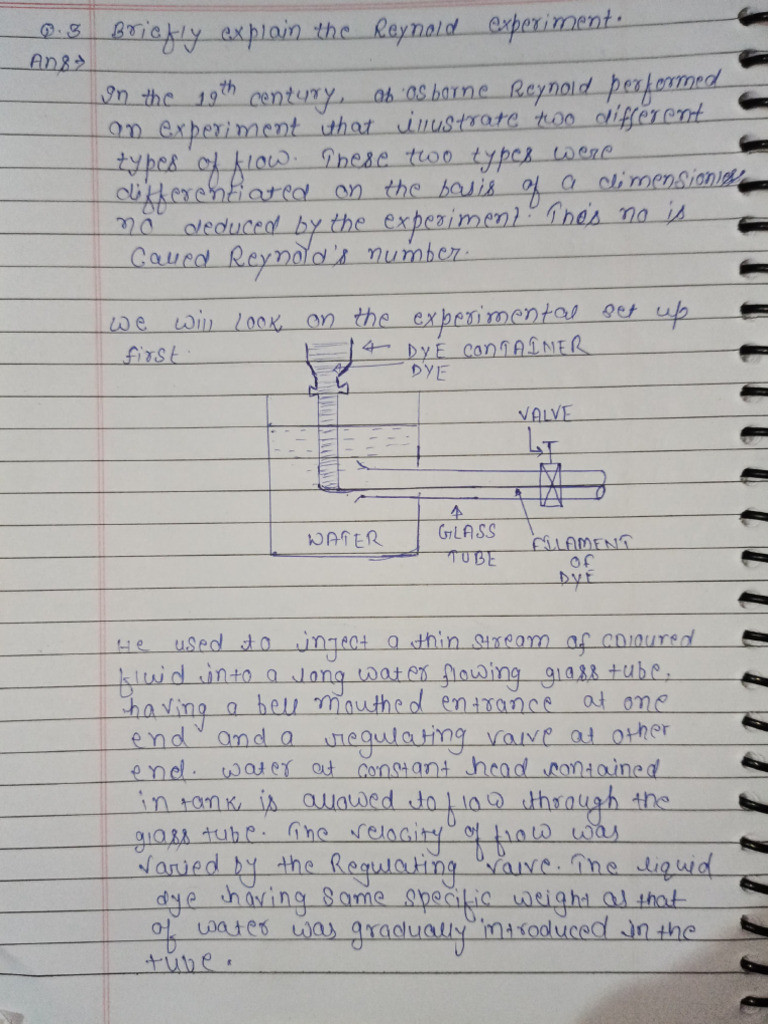 Q.3 Briefly explain the Reynold experiment.
Ans→
In the 19th century, ob osborne Reynold performed
an experiment that illustrate two different
types of flow. These two types were
differentiated on the basis of a dimensionless
no deduced by the experiment. This no is
Called Reynold's number.
we will look on the experimental set up
first.
← DYE CONTAINER
DYE
VALVE
WATER
GLASS
TUBE
FILAMENT
OF
DYE
He used to inject a thin stream of coloured
fluid into a long water flowing glass tube,
having a bell mouthed entrance at one
end and a regulating valve at other
end. water at constant head contained
in tank is allowed to flow through the
glass tube. The velocity of flow was
varied by the Regulating valve. The liquid
dye having same specific weight as that
of water was gradually introduced in the
tube.